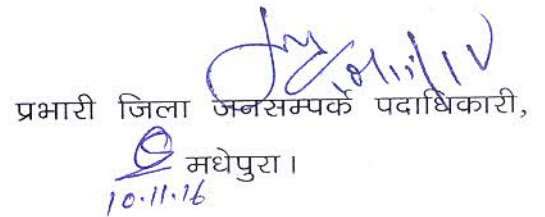 प्रभारी जिला जनसम्पर्क पदाधिकारी,
मधेपुरा।
10.11.16